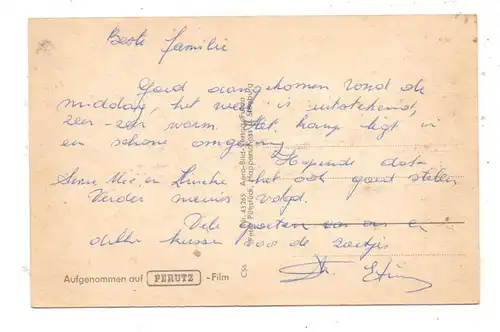 Beste familie
Goed aangekomen rond de
middag, het weer is uitstekend,
zeer-zeer warm. Het kamp ligt in
een schone omgeving
Hopende dat
het ook goed stellen
Verder meines volgd.
Vele groeten van ons en
dikke kussen voor de zoetjes
Aufgenommen auf PERUTZ -Film
C56